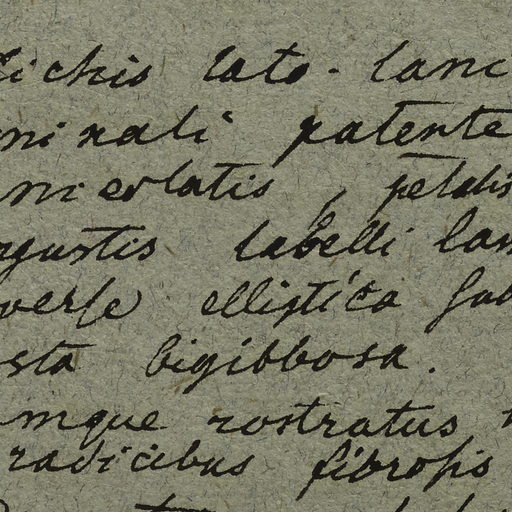 tichis lato-lanc
minali patente
niculatis, petalis
ngustis labelli lam
verse elliptica sub
sta bigibbosa.
umque rostratus
radicibus fibrosis